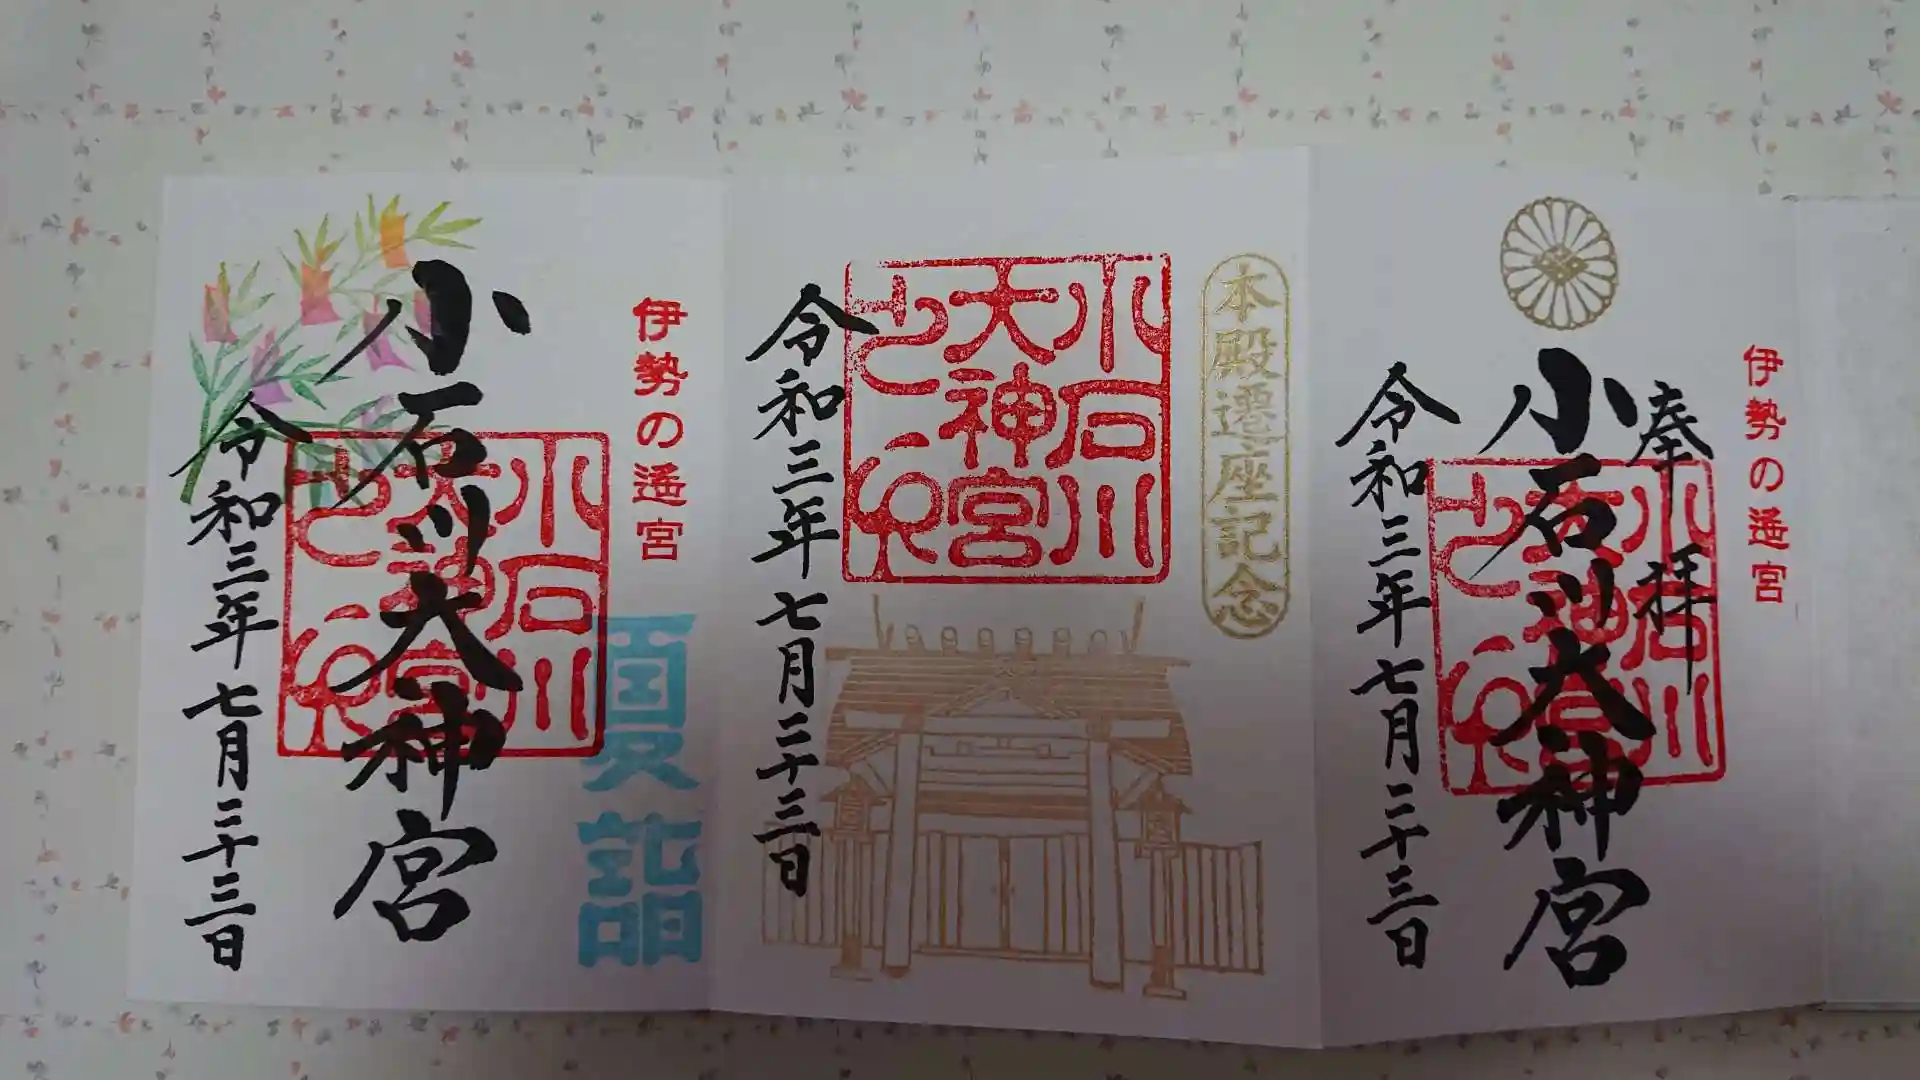 伊勢の遥宮
奉拝
小石川大神宮
小石川
大神宮
令和三年七月二十三日
本殿遷座記念
小石川
大神宮
令和三年七月二十三日
伊勢の遥宮
夏詣
小石川大神宮
小石川
大神宮
令和三年七月二十三日